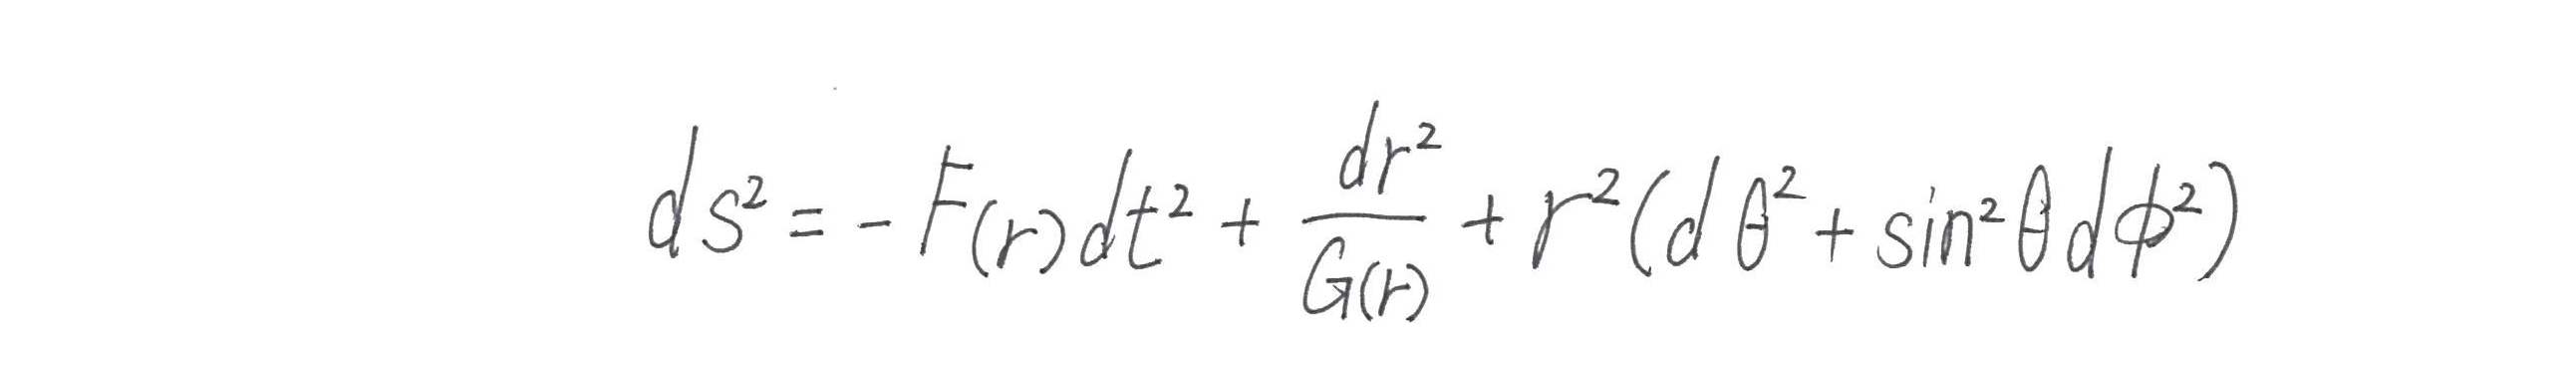 ds² = -F(r)dt² + \frac{dr²}{G(r)} + r²(dθ² + sin²θdϕ²)